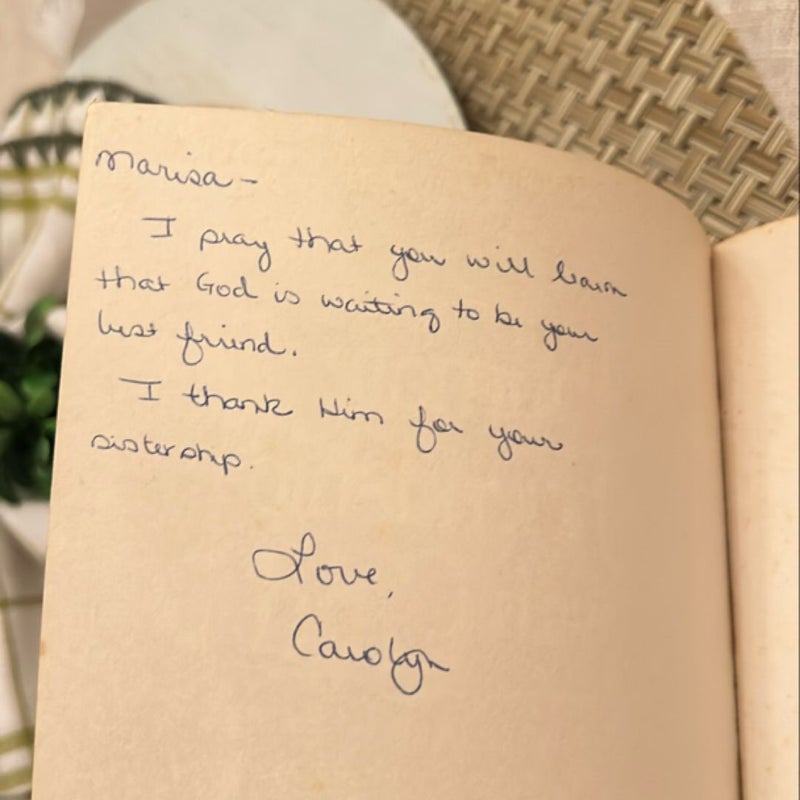 Marisa -
I pray that you will learn
that God is waiting to be your
best friend.
I thank Him for your
sistership.
Love,
Carolyn